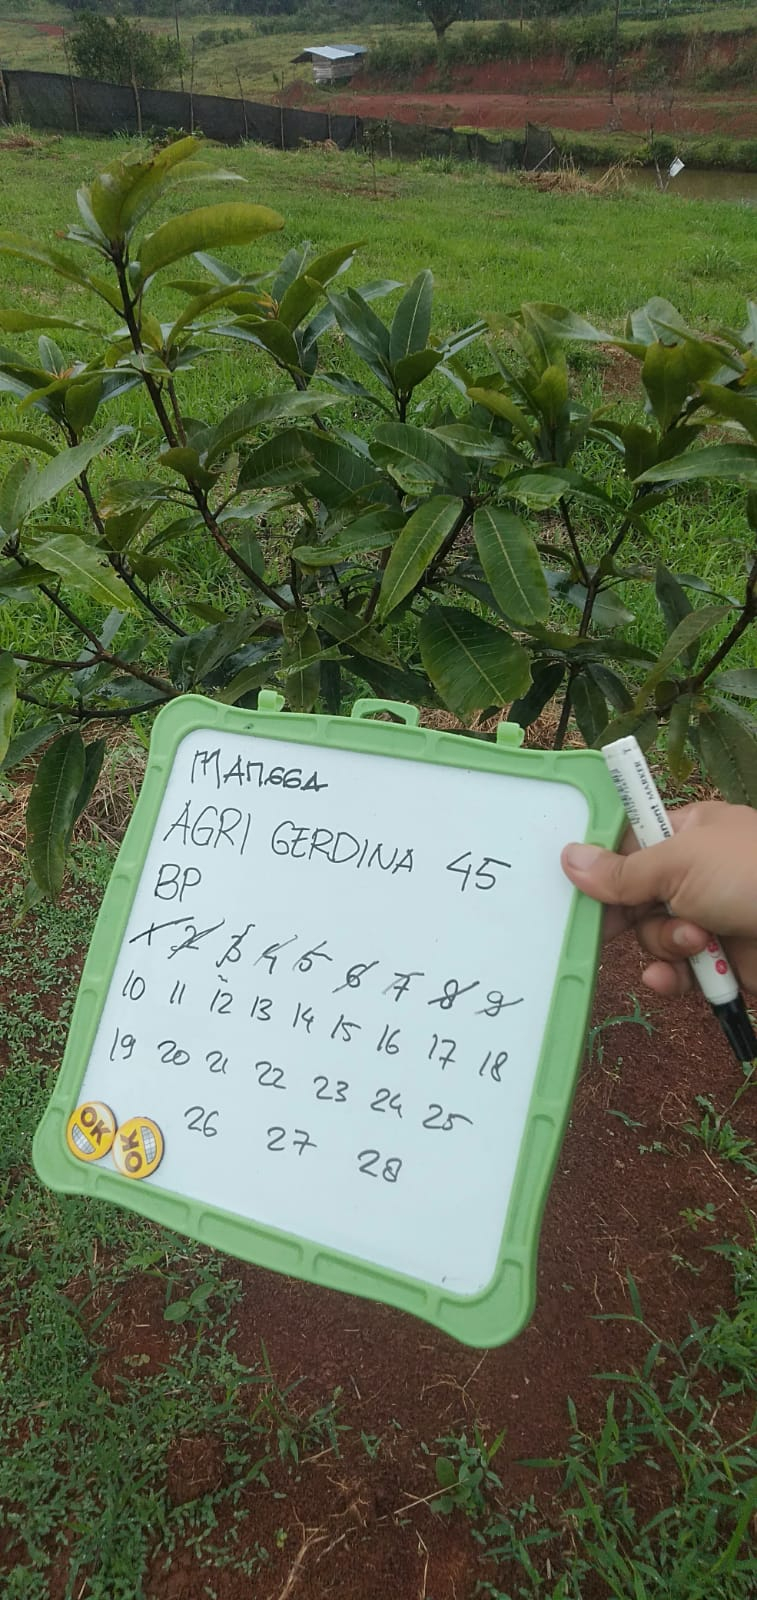 MANGGA
AGRI GERDINA 45
BP
1 2 3 4 5 6 7 8 9
10 11 12 13 14 15 16 17 18
19 20 21 22 23 24 25
26 27 28
OK OK
MARKER